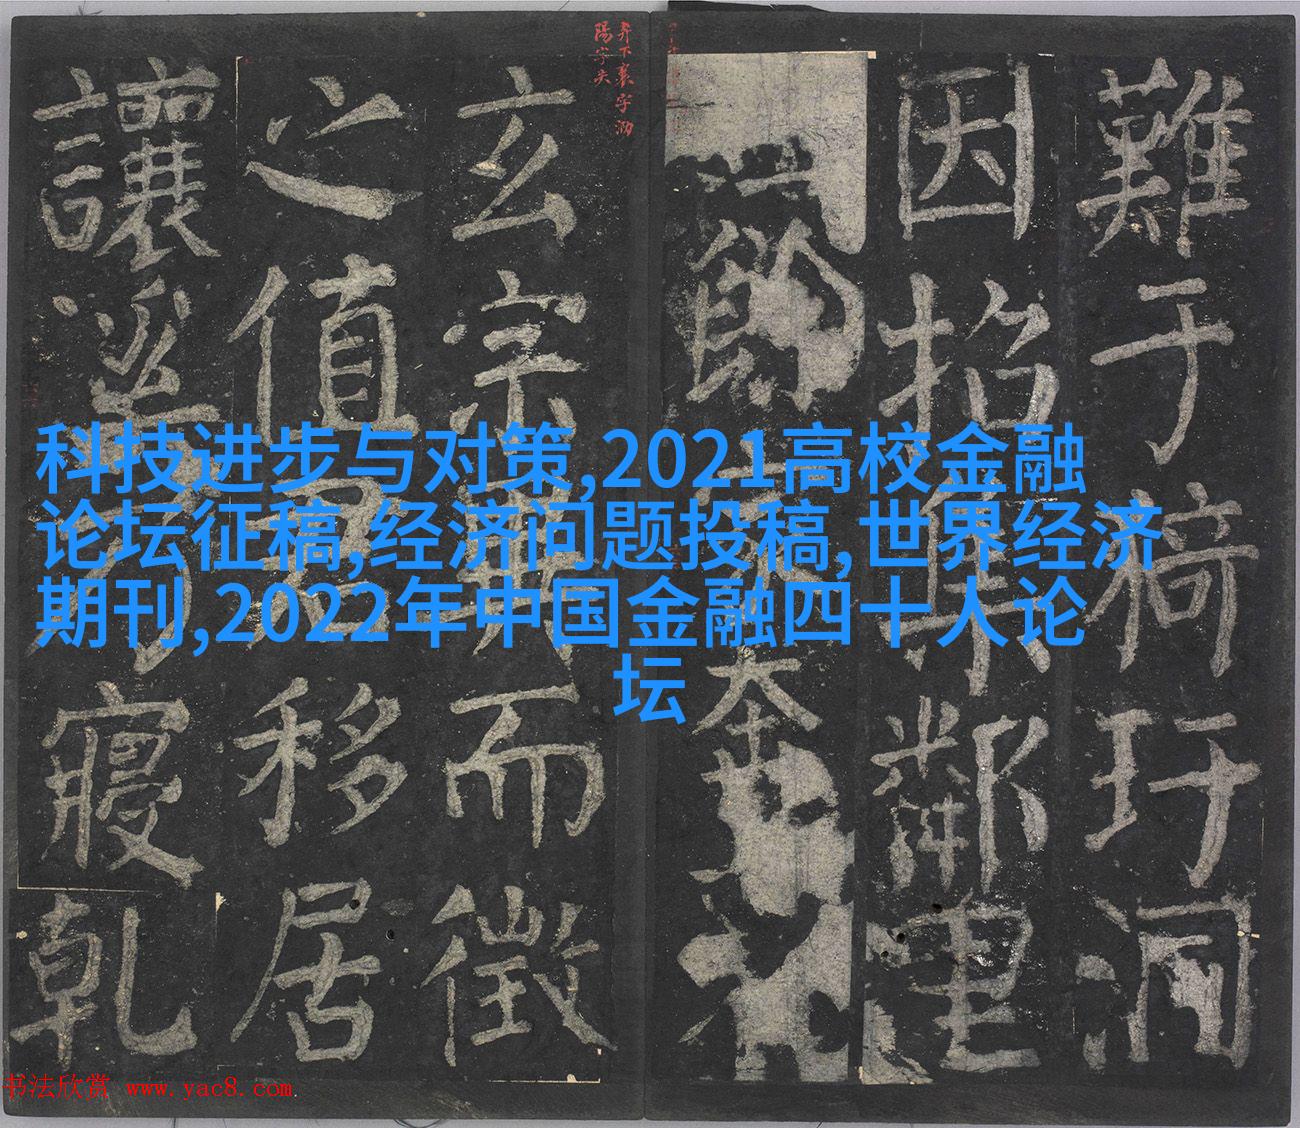 科技进步与对策,2021高校金融
论坛征稿,经济问题投稿,世界经济
期刊,2022年中国金融四十人论
坛
難于猗玗洞
因招集鄰里
餘家奔
玄宗異而徵
之值君移居
讓乃寢乾
奔下襄字泐
陽字失
书法欣赏 www.yac8.com